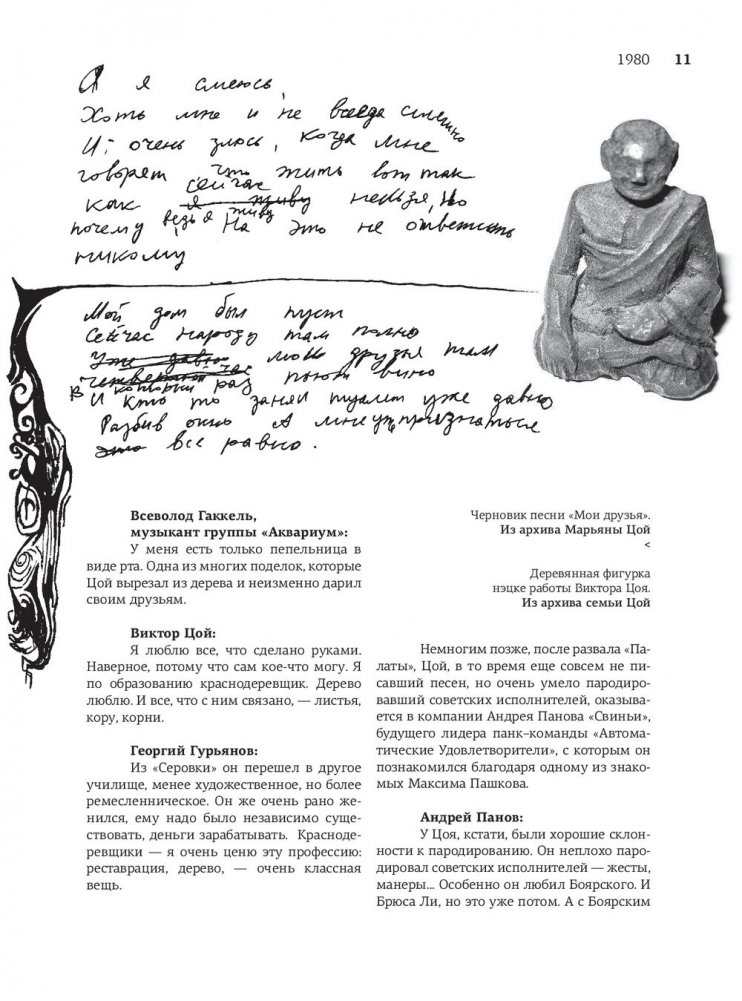 1980 11
А я смеюсь,
Хоть мне и не всегда смешно
И очень злюсь, когда мне
говорят, что жить вот так
как я живу сейчас нельзя, но
почему, ведь я живу, На это не ответить
никому
Мой дом был пуст
Сейчас народу там полно
Уже давно мои друзья там
В который раз пьют вино
И Кто то занял туалет уже давно
Разбив окно А мне уж признаться
это все равно.
Всеволод Гаккель,
музыкант группы «Аквариум»:
У меня есть только пепельница в
виде рта. Одна из многих поделок, которые
Цой вырезал из дерева и неизменно дарил
своим друзьям.
Виктор Цой:
Я люблю все, что сделано руками.
Наверное, потому что сам кое-что могу. Я
по образованию краснодеревщик. Дерево
люблю. И все, что с ним связано, — листья,
кору, корни.
Георгий Гурьянов:
Из «Серовки» он перешел в другое
училище, менее художественное, но более
ремесленническое. Он же очень рано же-
нился, ему надо было независимо суще-
ствовать, деньги зарабатывать. Красноде-
ревщики — я очень ценю эту профессию:
реставрация, дерево, — очень классная
вещь.
Черновик песни «Мои друзья».
Из архива Марьяны Цой
<
Деревянная фигурка
нэцке работы Виктора Цоя.
Из архива семьи Цой
Немногим позже, после развала «Па-
латы», Цой, в то время еще совсем не пи-
савший песен, но очень умело пародиро-
вавший советских исполнителей, оказыва-
ется в компании Андрея Панова «Свиньи»,
будущего лидера панк–команды «Автома-
тические Удовлетворители», с которым он
познакомился благодаря одному из знако-
мых Максима Пашкова.
Андрей Панов:
У Цоя, кстати, были хорошие склон-
ности к пародированию. Он неплохо паро-
дировал советских исполнителей — жесты,
манеры... Особенно он любил Боярского. И
Брюса Ли, но это уже потом. А с Боярским